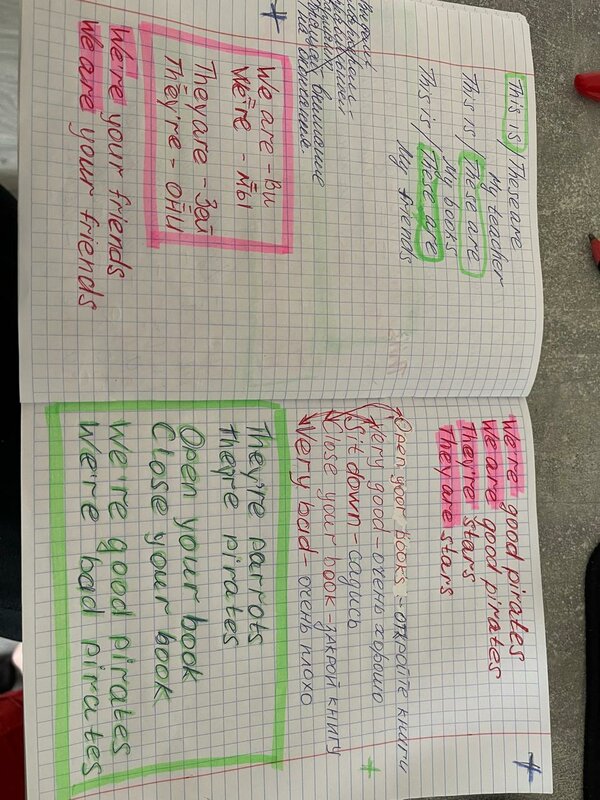 This is / These are
my teacher
This is / These are
my books
This is / These are
My friends
внимание
We are - Ви
We're - мы
They are - Зей
They're - они
We're your friends
We are your friends
We're good pirates
We are good pirates
They're stars
They are stars
Open your books - откройте книги
Very good - очень хорошо
Sit down - садись
Close your book - закрой книгу
Very bad - очень плохо
They're parrots
they're pirates
Open your book
Close your book
We're good pirates
We're bad pirates